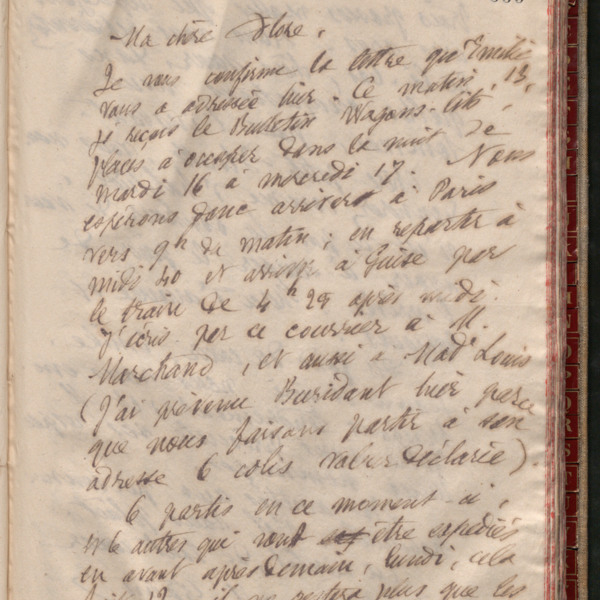 Ma chère Flore,
Je vous confirme la lettre que Emilie
vous a adressée hier. Ce matin, 13,
je reçois le Bulletin Wagons-lits,
places à occuper dans la nuit de
mardi 16 à mercredi 17. Nous
espérons donc arriver à Paris
vers 9h du matin ; en repartir à
midi 40 et arriver à Guise par
le train de 4h 29 après midi.
J'écris par ce courrier à M.
Marchand, et aussi a Mad Louis
(J'ai prévenu Buridant hier parce
que nous faisons partir à son
adresse 6 colis valeur déclarée).
6 partis en ce moment-ci,
6 autres qui vont être expédiés
en avant après demain, lundi, cela
fait 12 il ne restera plus que les